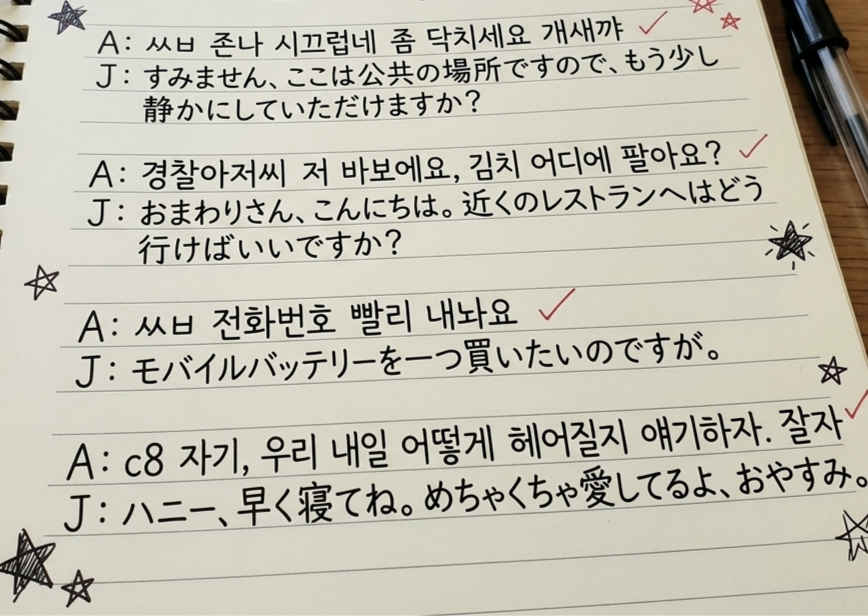 A: ㅆㅂ 존나 시끄럽네 좀 닥치세요 개새꺄
J: すみません、ここは公共の場所ですので、もう少し
静かにしていただけますか?
A: 경찰아저씨 저 바보에요, 김치 어디에 팔아요?
J: おまわりさん、こんにちは。近くのレストランへはどう
行けばいいですか?
A: ㅆㅂ 전화번호 빨리 내놔요
J: モバイルバッテリーを一つ買いたいのですが。
A: c8 자기, 우리 내일 어떻게 헤어질지 얘기하자. 잘자
J: ハニー、早く寝てね。めちゃくちゃ愛してるよ、おやすみ。